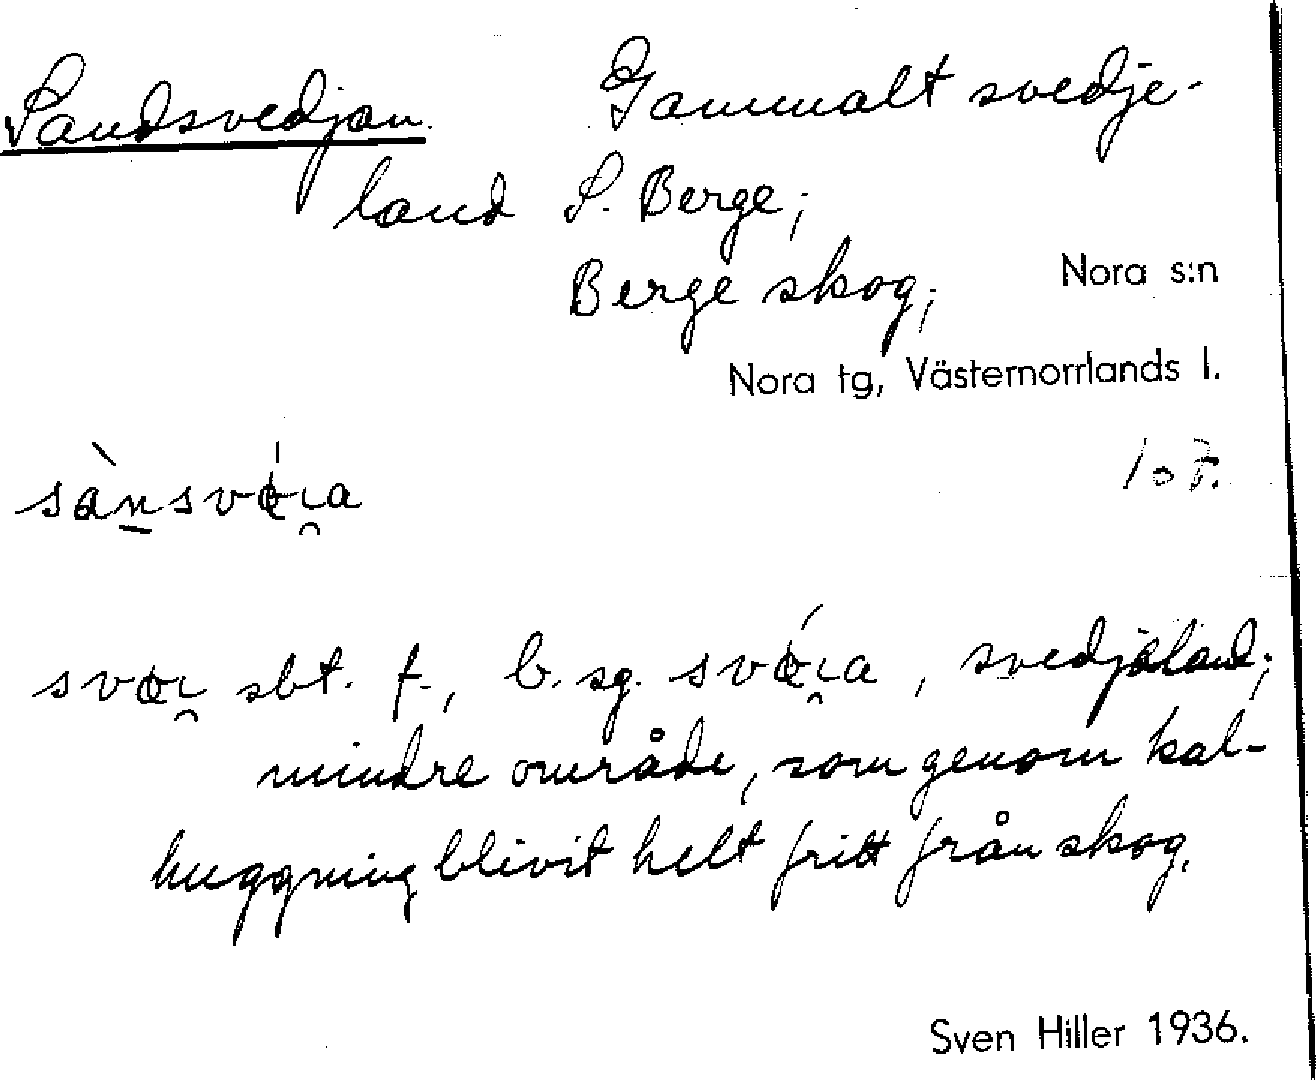 Sandsvedjan. Gammalt svedje-
land S. Berge;
Berge skog; Nora s:n
Nora tg, Västernorrlands l.
sbt. f., b. sg. , svedjeland;
mindre område, som genom kal-
huggning blivit helt fritt från skog.
Sven Hiller 1936.